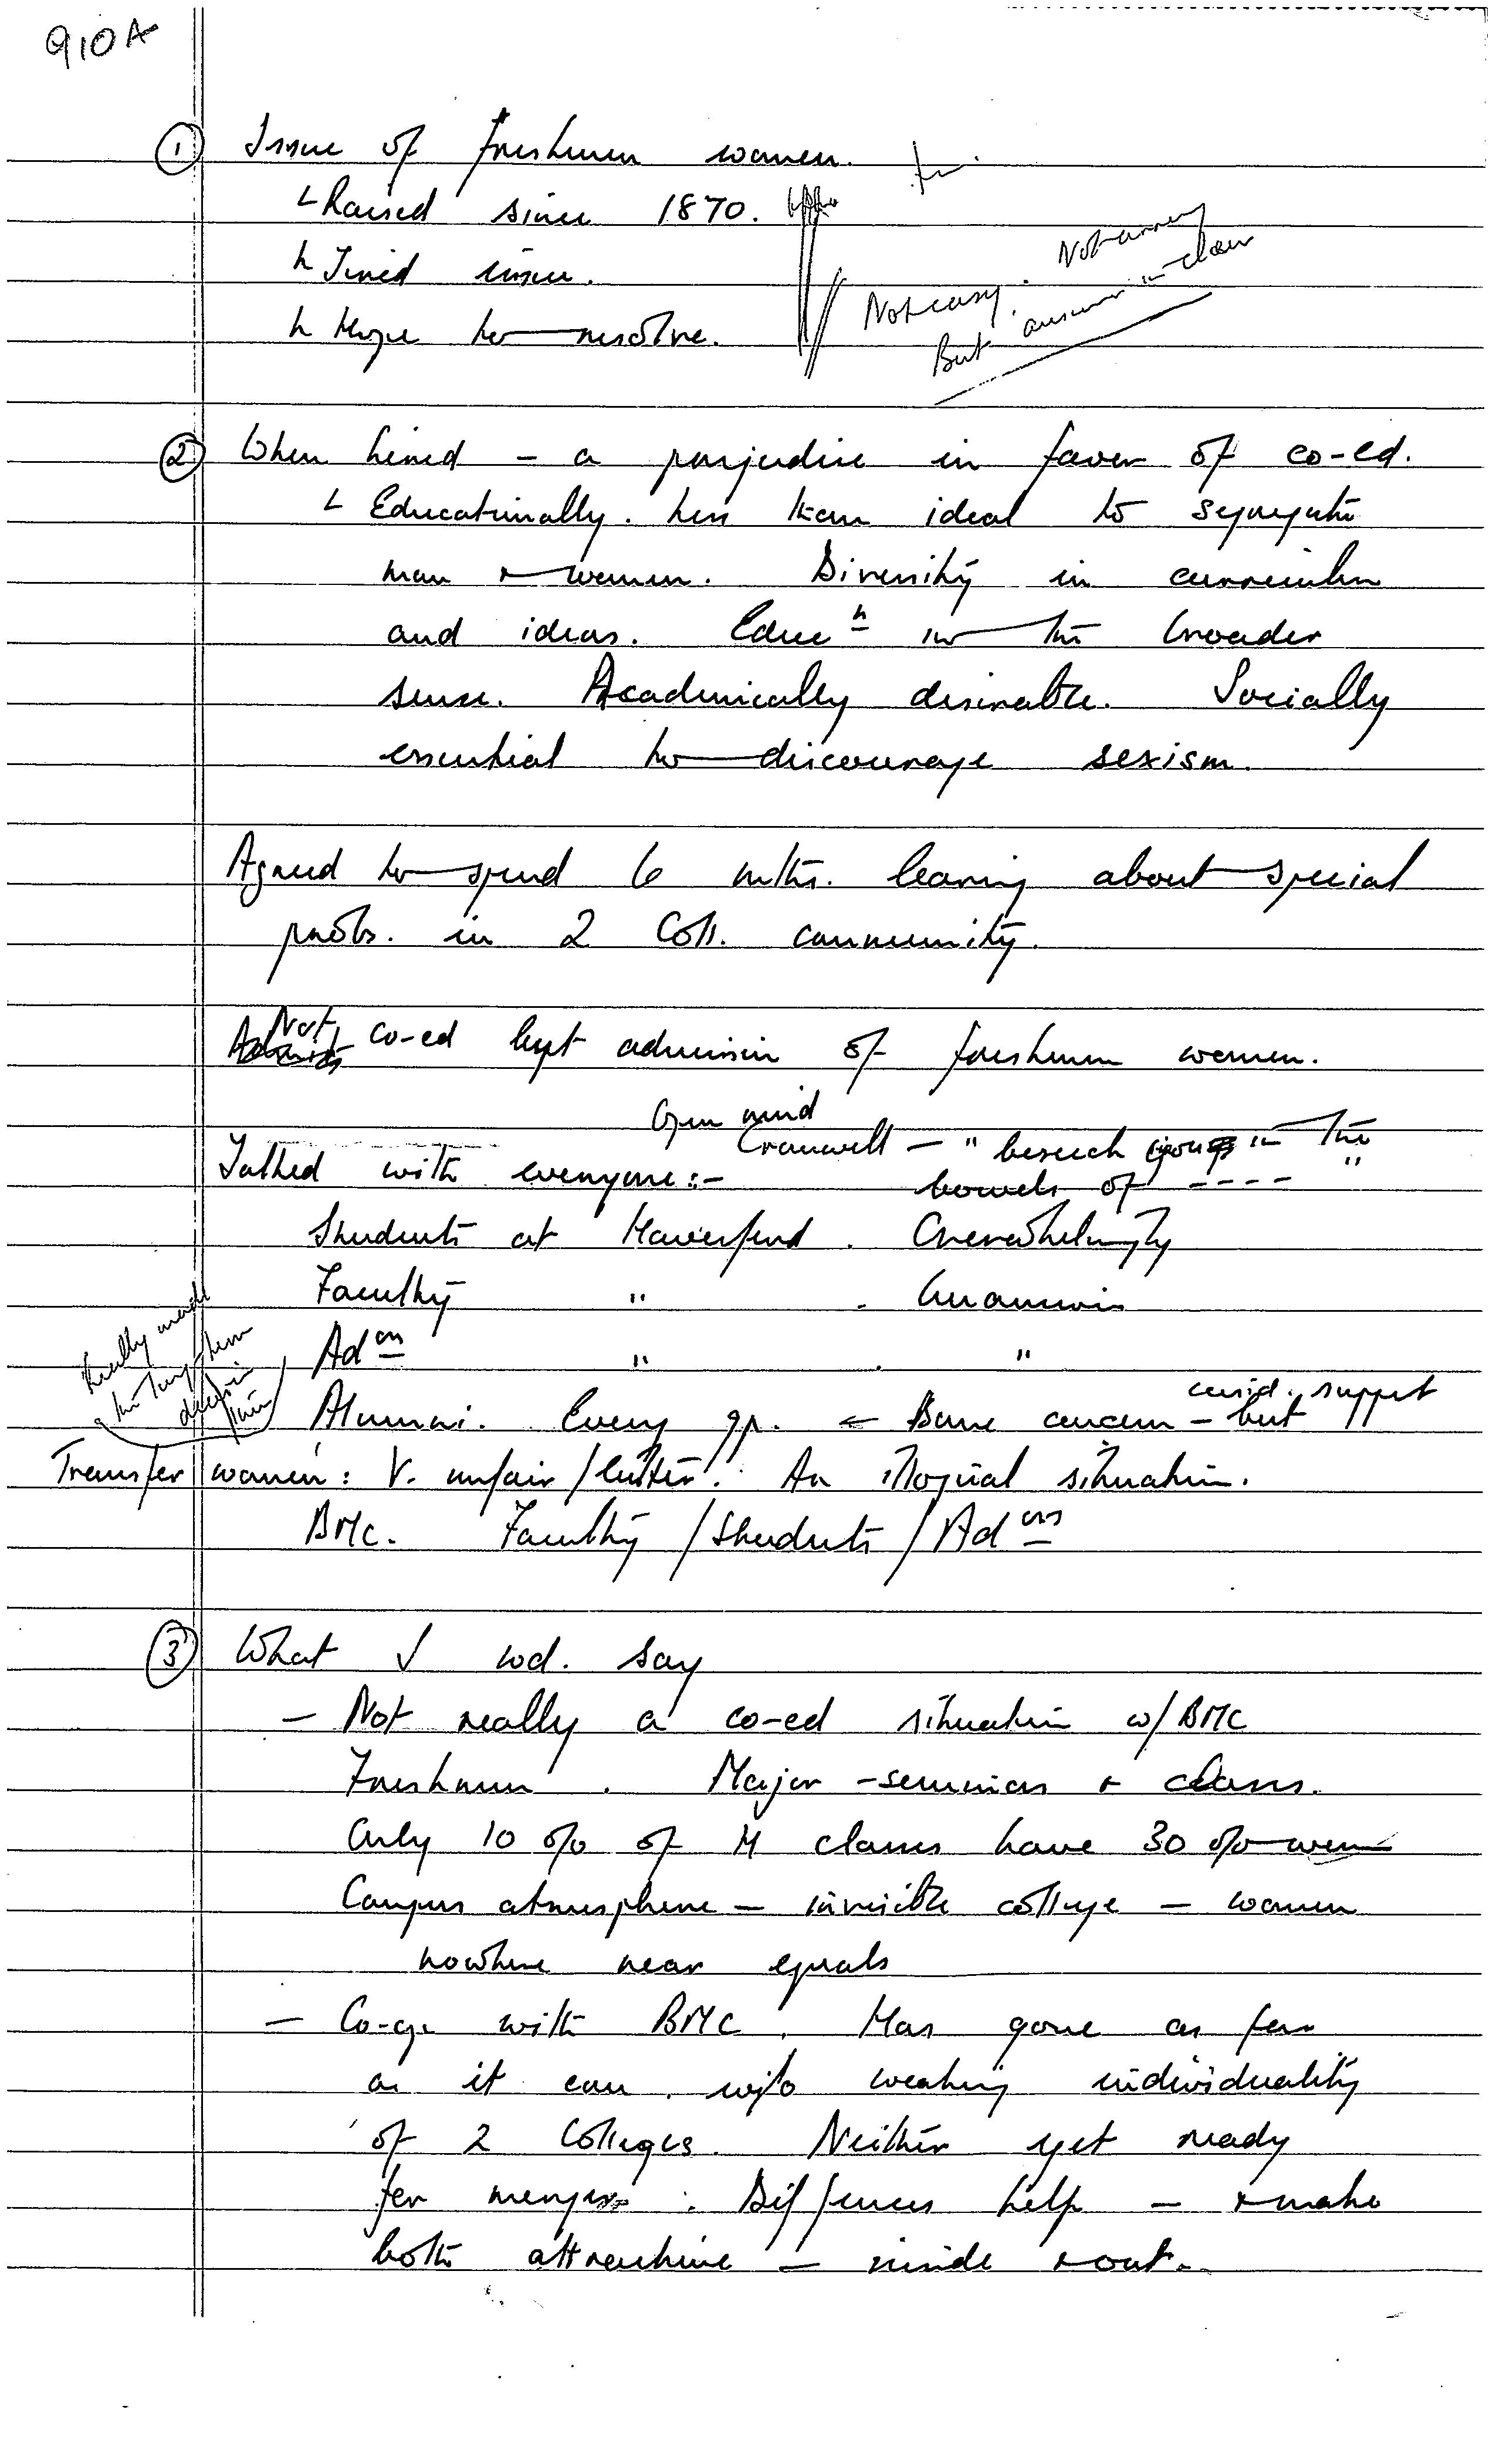 910A
① Issue of freshmen women.
Raised since 1870.
Tired issue.
Hope to resolve.
Not easy. Not
But answer is clear
② When hired - a prejudice in favor of co-ed.
Educationally. Less than ideal to segregate
men & women. Diversity in curriculum
and ideas. Educn in the broader
sense. Academically desirable. Socially
essential to discourage sexism.
Agreed to spend 6 mths. learning about special
probs. in 2 Coll. community.
Not co-ed but admission of freshmen women.
Open mind
Cromwell - "beseech you in the
Talked with everyone:- bowels of ----"
Students at Haverford. Overwhelmingly
Faculty " . Unanimous
Adon " . "
Alumni. Every gp. ← Some concern - but consid. support
Really made
decision
Transfer women: V. unfair/bitter. An illogical situation.
BMC. Faculty/Students/Adon
③ What I wd. say
- Not really a co-ed situation w/BMC
Freshmen. Major-seminars & classes.
Only 10 % of H classes have 30 % women
Campus atmosphere - invisible college - women
nowhere near equals
- Co-op. with BMC. Has gone as far
as it can w/o weakening individuality
of 2 Colleges. Neither yet ready
for merger. Differences help - & make
both attractive - inside & out.